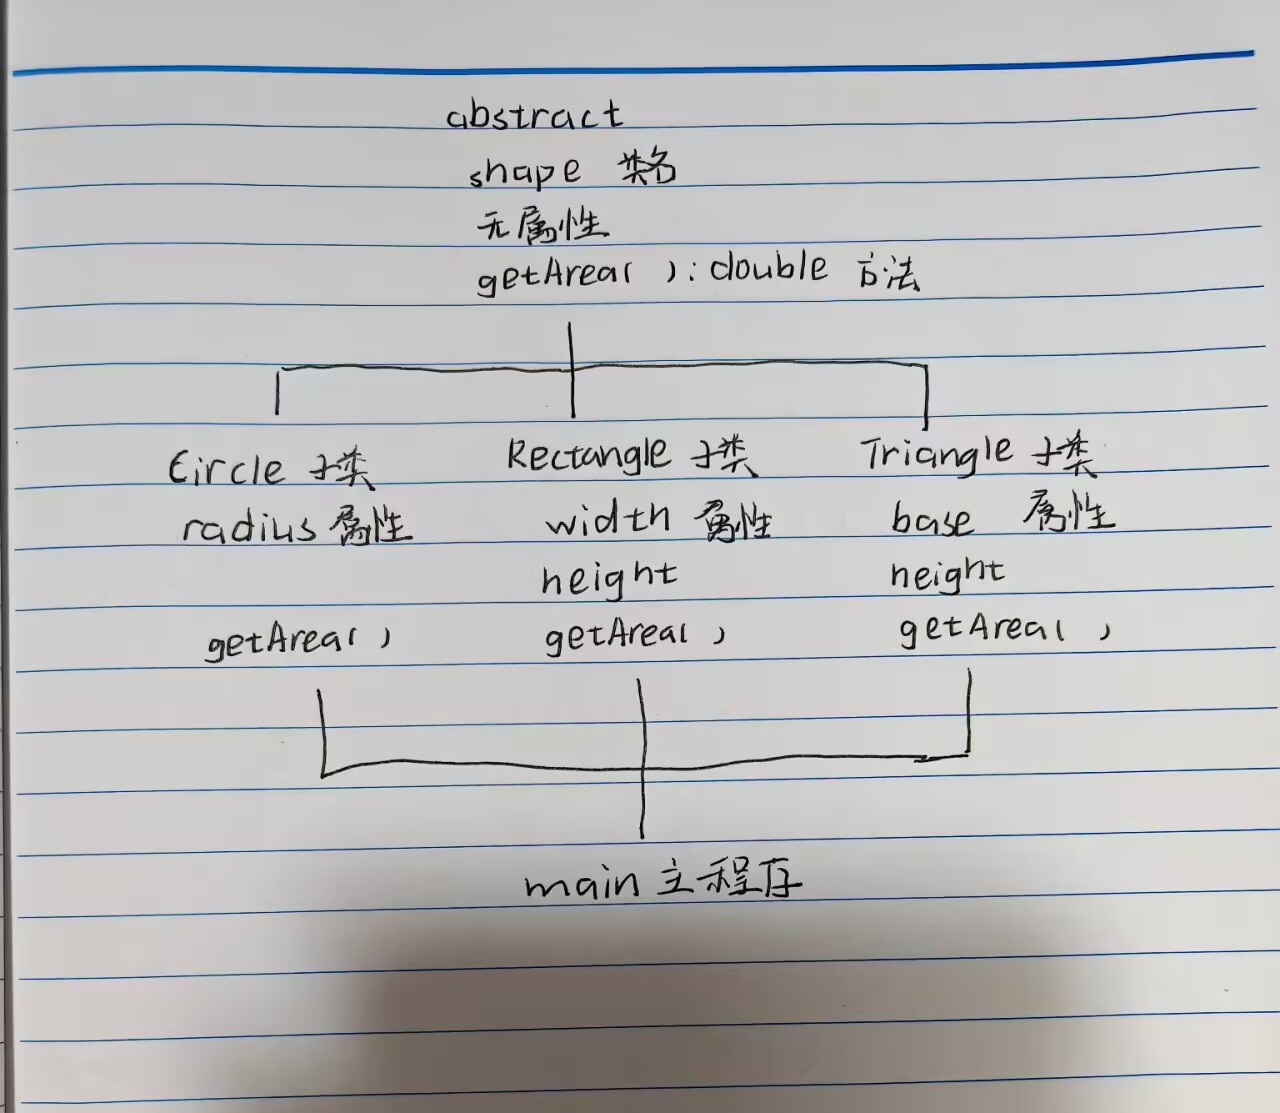 abstract
shape 类名
无属性
getArea( ): double 方法
Circle 子类 Rectangle 子类 Triangle 子类
radius 属性 width 属性 base 属性
height height
getArea( ) getArea( ) getArea( )
main 主程序